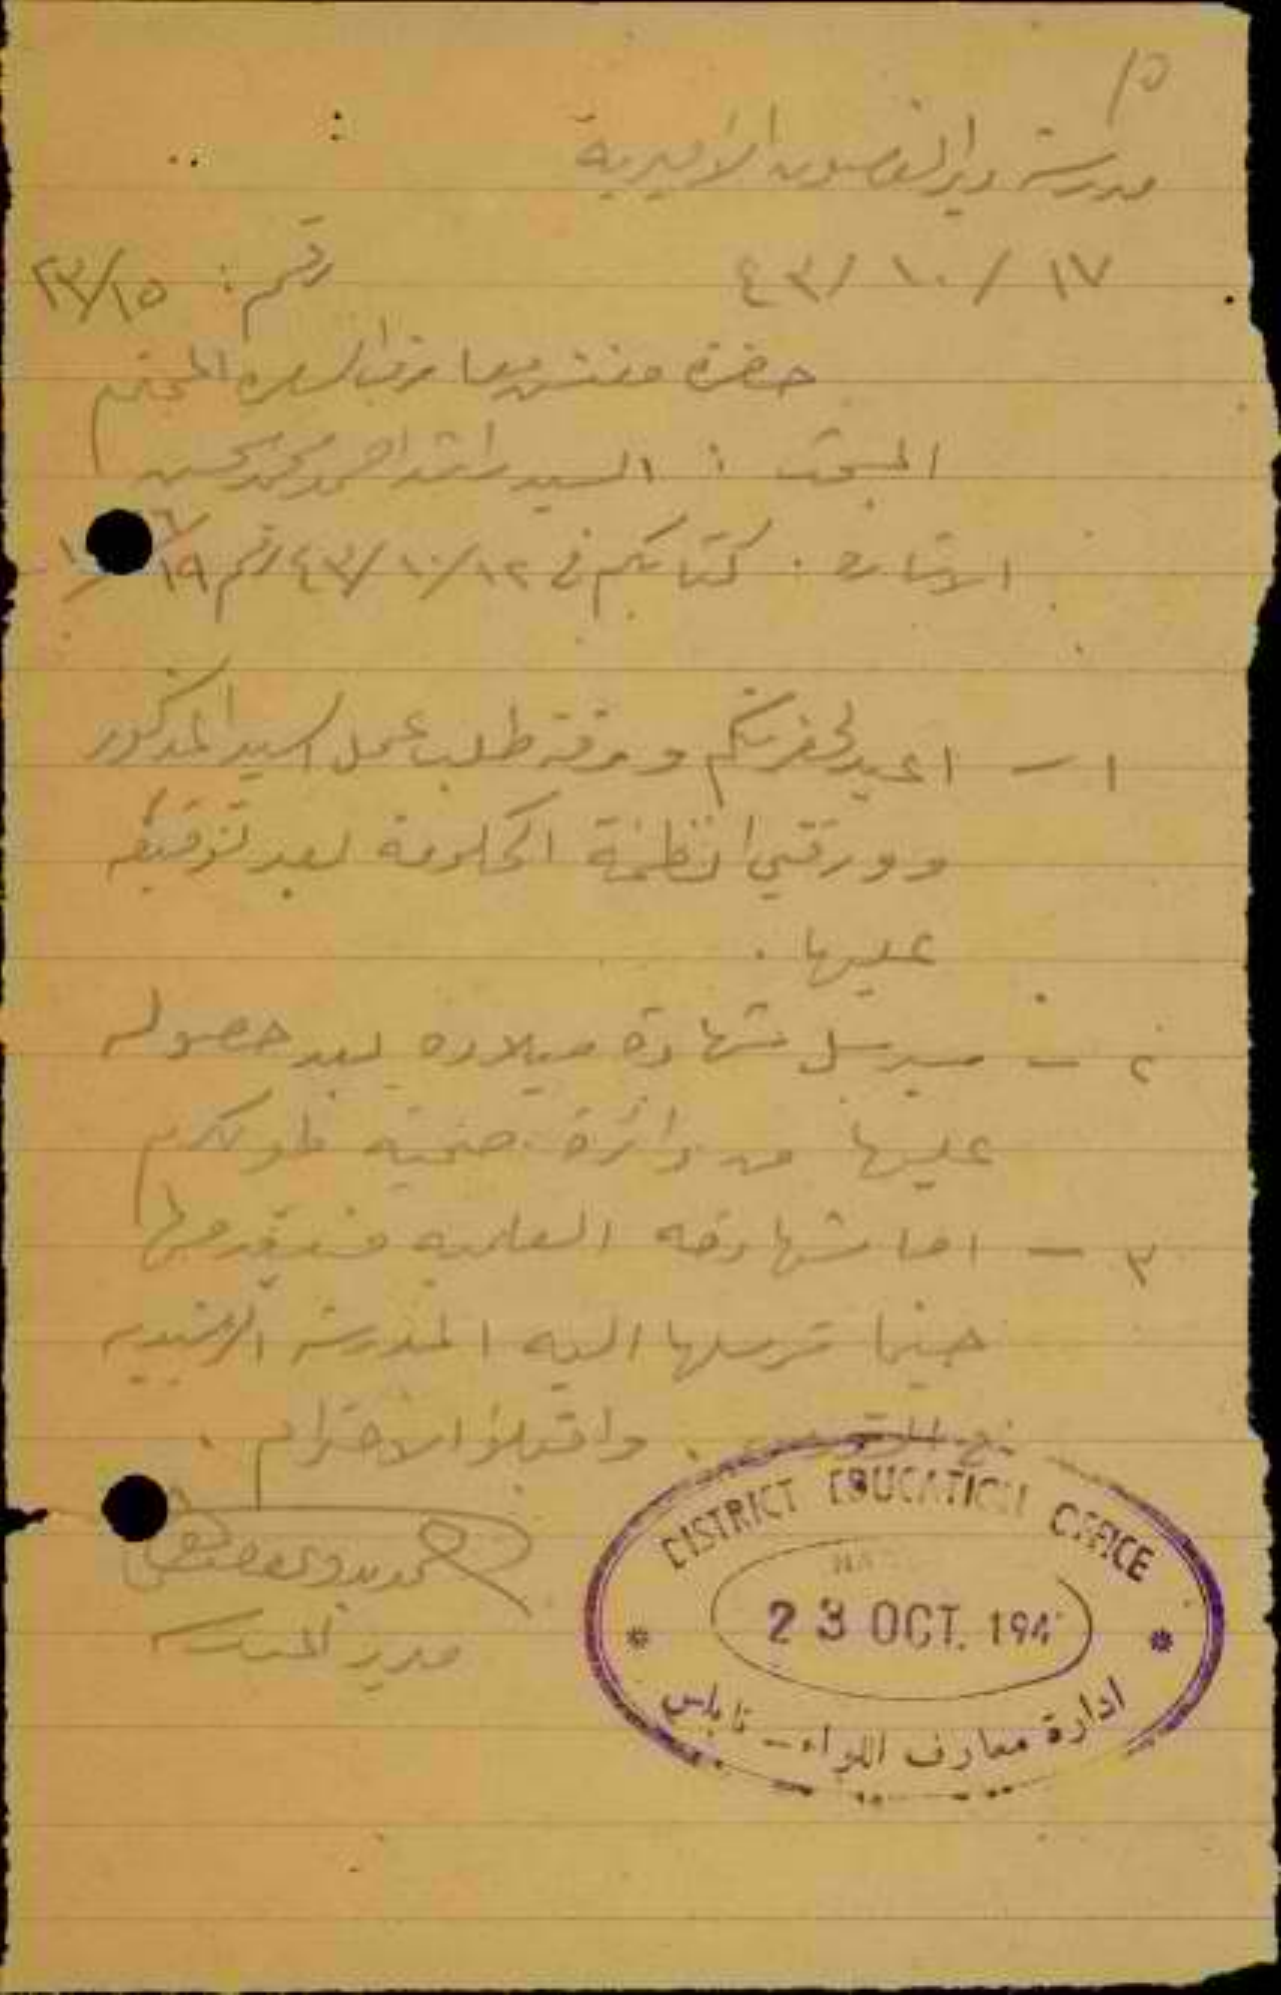 ١٥
مدرسة دير الغصون الاميرية
١٧ / ١٠ / ٤٣ رقم : ٢٣/١٥
حضرة مفتش معارف لواء المحترم
المبحث : السيد راشد احمد محمد محسن
الاشارة . كتابكم في ١٢ / ١٠ / ٤٣ رقم
١ - اعيد لحضرتكم ورقة طلب عمل السيد المذكور
وورقتي انظمة الحكومة بعد توقيعه
عليها .
٢ - سيرسل شهادة ميلاده بعد حصوله
عليها من دائرة صحية طولكرم
٣ - اما شهادته العلمية فسيقدمها
حينما ترسلها اليه المدرسة الرشيدية
. واقبلوا الاحترام .
مدير المدرسة
DISTRICT EDUCATION OFFICE
23 OCT. 194
ادارة معارف اللواء - نابلس